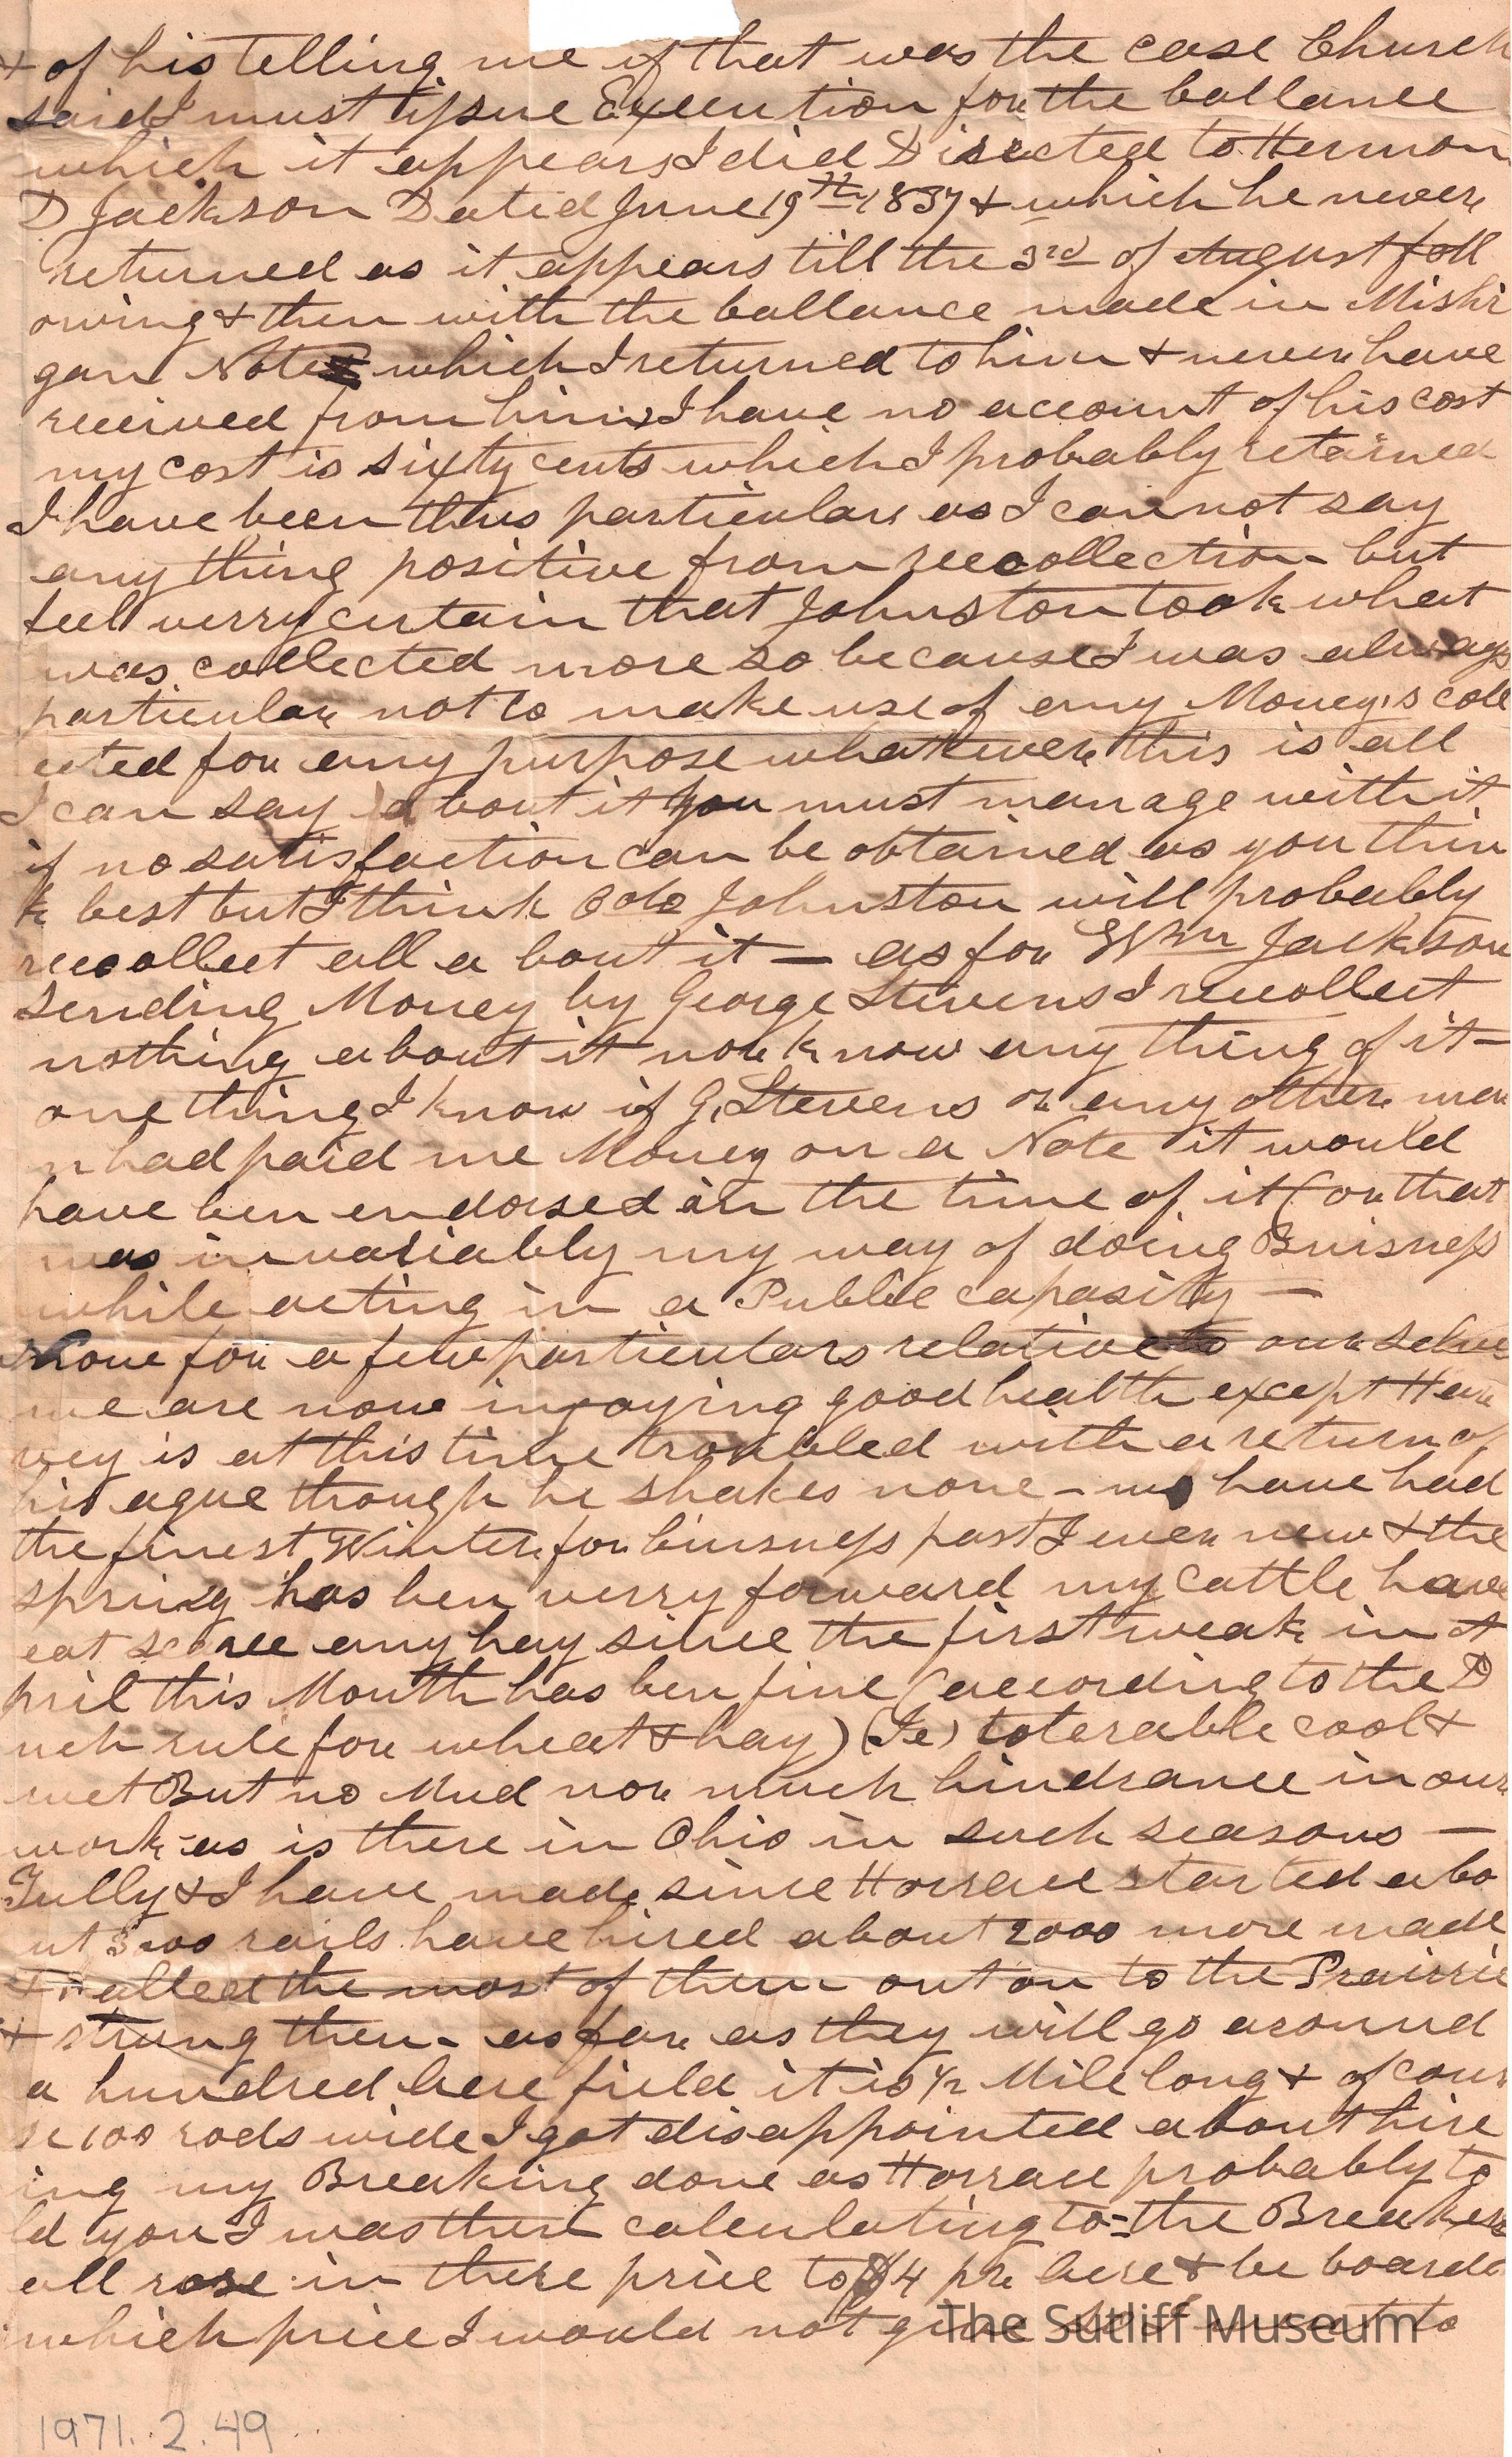 + of his telling me if that was the case Church
said I must issue Execution for the ballance
which it appears I did Directed to Hermon
D Jackson Datid June 19th 1837 + which he never
returned as it appears till the 3rd of August foll
owing + then with the ballance made in Mishi
gan Notes which I returned to him + never have
received from him I have no account of his cost
my cost is sixty cents which I probably retained
I have been thus particular as I cannot say
any thing positive from reecollection but
feel verry certain that Johnston took what
was collected more so because I was always
particular not to make use of any Moneys coll
ected for any purpose whatever this is all
I can say about it you must manage with it
if no satisfaction can be obtained as you thin
k best but I think Johnston will probably
reecollect all a bout it — as for Wm Jackson
sending Money by George Stevens I recollect
nothing about it nor know any thing of it —
one thing I know if G. Stevens or any other ma
n had paid me Money on a Note it would
have ben endorsed in the time of it for that
was invariably my way of doing Buisness
while acting in a Public capasity —
Now for a few particulars relative to our selves
we are now injoying good health except Har
vey is at this time troubled with a return of
his ague though he shakes none - we have had
the finest Winter for buisness past I ever new + the
spring has ben verry forward my cattle have
eat scarce any hay since the first weak in A
pril this Month has ben fine (according to the D
uch rule for wheat + hay) (Ie) tolerable cool +
wet But no Mud nor much hindrance in our
work as is there in Ohio in such seasons —
Tully + I have made since Horrace started abo
ut rails have hired about 2000 more made
+ the most of them out on to the Prairie
+ strung them as far as they will go around
a hundred acre field it is 1/2 Mile long + of cour
se 100 rods wide I got disappointed about hire
ing my Breaking done as Horrace probably to
ld you I was then calculating to = the Breakers
all rose in there price to $4 pr acre + be boarded
which price I would not give to
The Sutliff Museum
1971.2.49